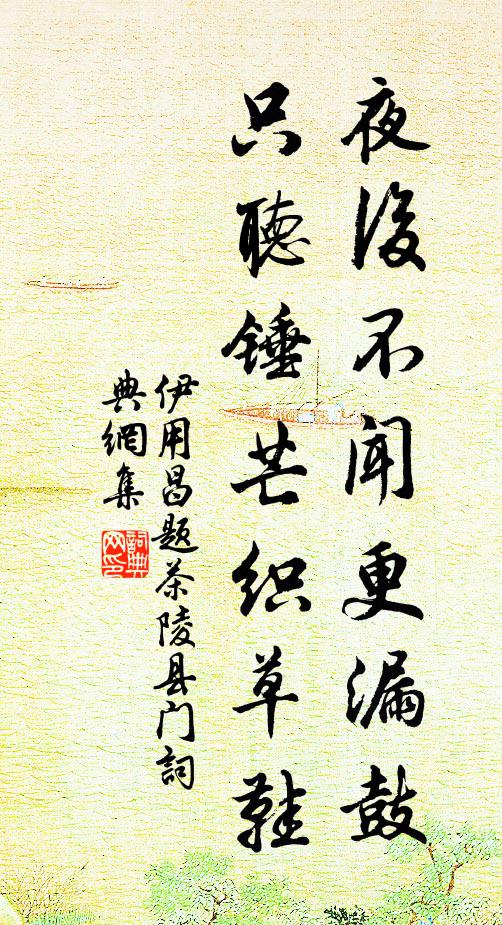 夜後不闻更漏鼓
只聽锤芒织草鞋
伊用昌题茶陵县门詞
典網集
詞典网印